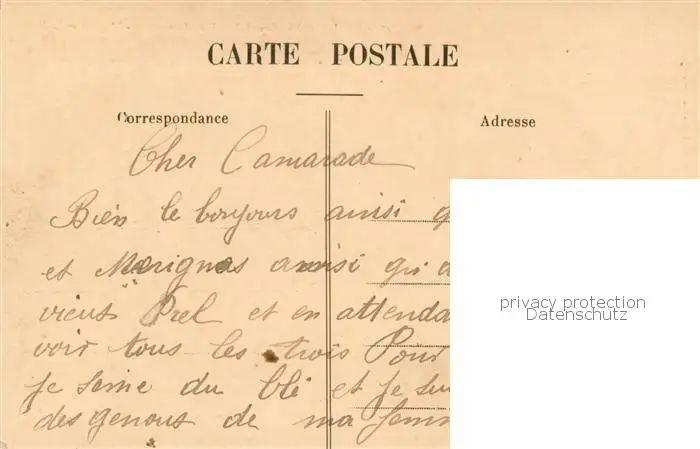 CARTE POSTALE
Correspondance
Adresse
Cher Camarade
Bien le bonjours ainsi q
et Merignas ainsi qu'a
vieus Prel et en attenda
voir tous les trois Pour
je seme du blé et je sui
des genous de ma femm
privacy protection
Datenschutz